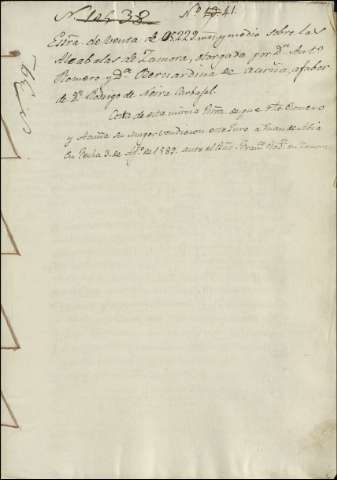 Nº 41.
Essra. de Venta de 05222 mrs. y medio sobre las
Alcabalas de Zamora, otorgada por Dn. Anto
Romero y Da. Bernardina de Acuña, a fabor
de Dn. Rodrigo de Neira Carbajal.
Costa de esta misma que Romero
y Acuña su muger vendieron este Juro a Juan de
En fecha 3. de de 1589. ante el Esno. en Zamora
Nº 39